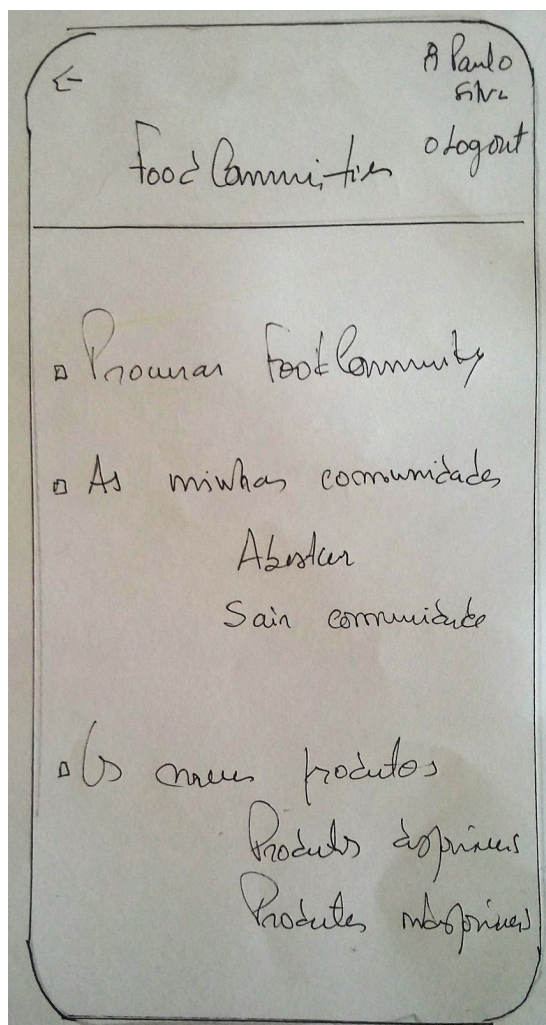 Paulo
Silva
Logout
Food Communities
Procurar Food Community
As minhas comunidades
Abastecer
Sair comunidade
Os meus produtos
Produtos disponíveis
Produtos indisponíveis